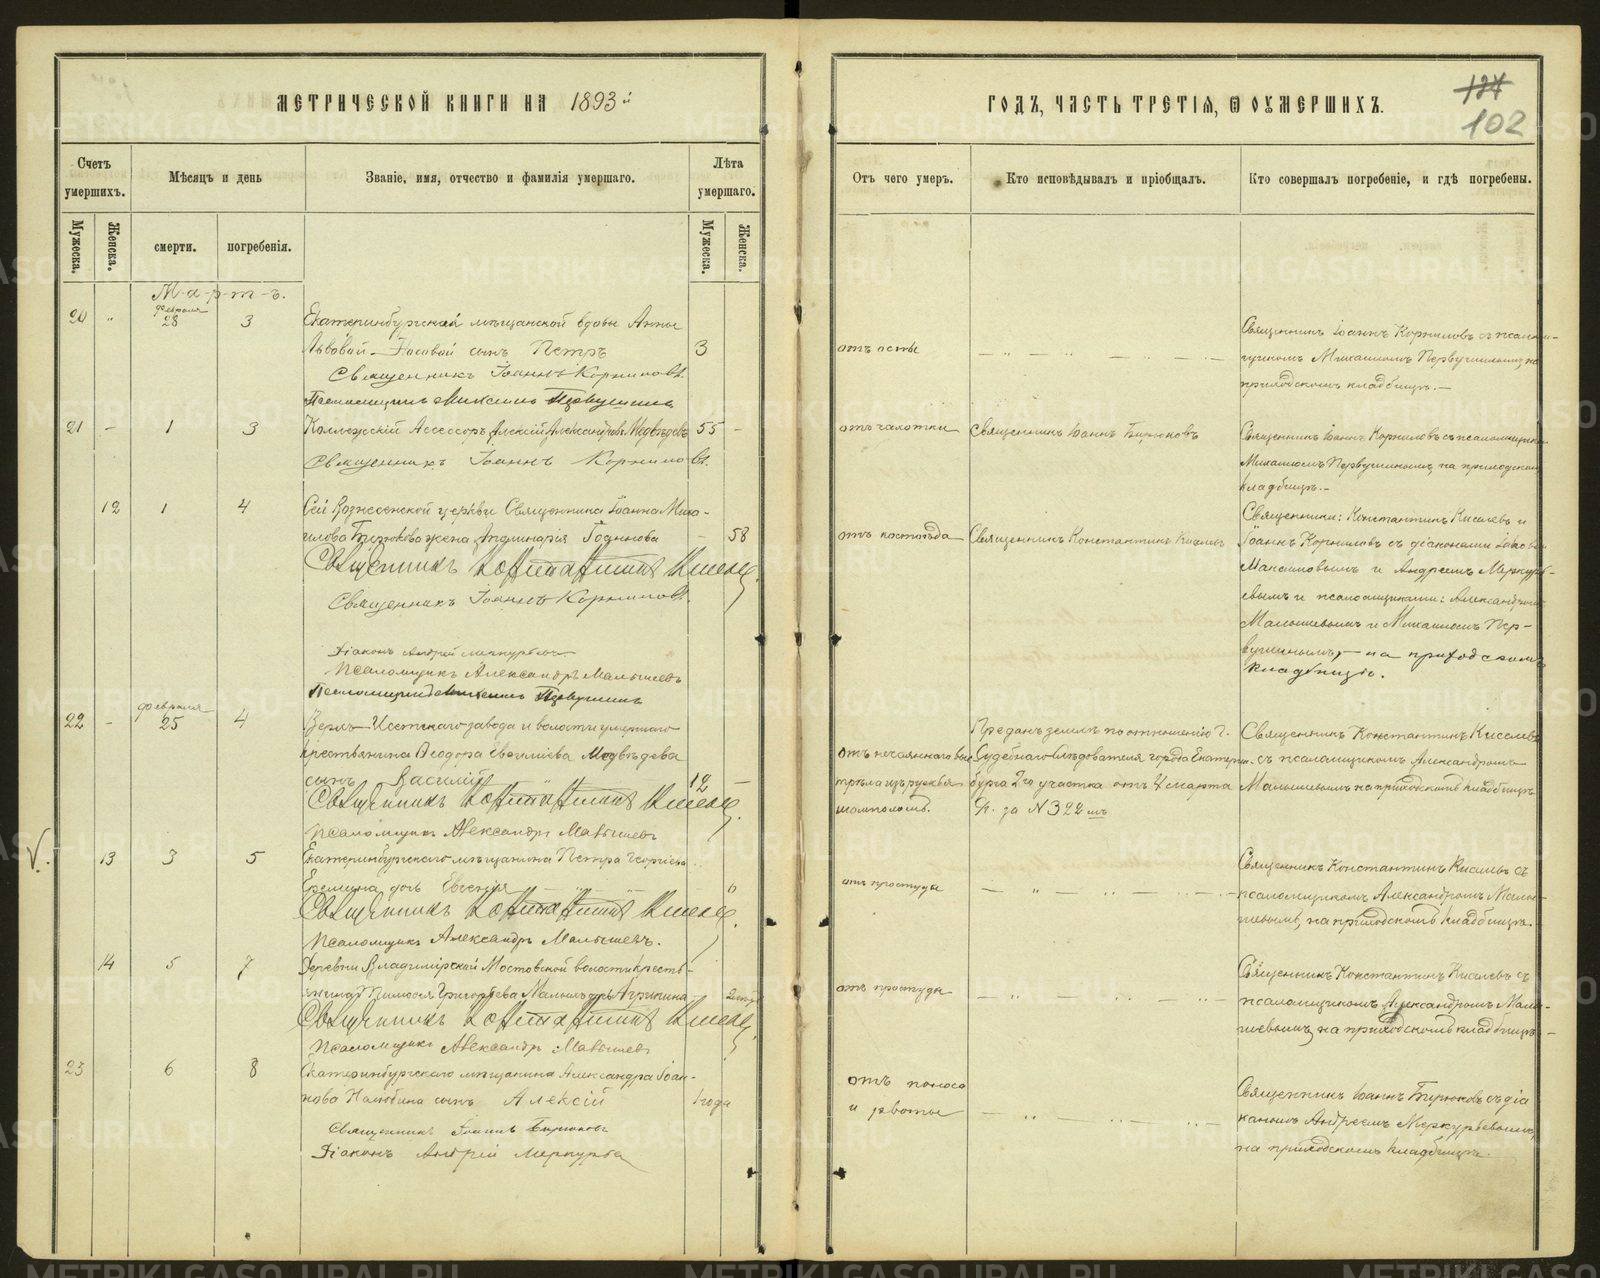 МЕТРИЧЕСКОЙ КНИГИ НА 1893й
ГОДЪ, ЧАСТЬ ТРЕТІЯ, Ѡ ОУМЕРШИХЪ.
102
Счетъ умершихъ.
Мѣсяцъ и день
Званіе, имя, отчество и фамилія умершаго.
Лѣта умершаго.
Отъ чего умеръ.
Кто исповѣдывалъ и пріобщалъ.
Кто совершалъ погребеніе, и гдѣ погребены.
Мужеска.
Женска.
смерти.
погребенія.
Мужеска.
Женска.
М-а-р-т-ъ.
февраля
20 " 28 3
Екатеринбургской мѣщанской вдовы Анны
Львовой Носовой сынъ Петръ 3
Священникъ Іоаннъ Корниловъ.
Псаломщикъ Михаилъ Первушинъ
отъ оспы
Священникъ Іоаннъ Корниловъ съ псалом-
щикомъ Михаиломъ Первушинымъ на
приходскомъ кладбищѣ.-
21 - 1 3
Коллежскій Ассесоръ Алексій Александровъ Медвѣдевъ 55 -
Священникъ Іоаннъ Корниловъ.
отъ чахотки
Священникъ Іоаннъ Бирюковъ
Священникъ Іоаннъ Корниловъ съ псаломщикомъ
Михаиломъ Первушинымъ, на приходскомъ
кладбищѣ.-
12 1 4
Сей Вознесенской церкви Священника Іоанна Миха-
илова Бирюкова жена Аполинарія Годинова - 58
Священникъ Константинъ Киселевъ.
Священникъ Іоаннъ Корниловъ.
Діаконъ Андрей Меркурьевъ
Псаломщикъ Александръ Малышевъ
Псаломщикъ Михаилъ Первушинъ
Священникъ Константинъ Киселевъ
Священники: Константинъ Киселевъ и
Іоаннъ Корниловъ съ діаконами
Максимовымъ и Андреемъ Меркурь-
евымъ и псаломщиками: Александромъ
Малышевымъ и Михаиломъ Пер-
вушинымъ, - на приходскомъ
кладбищѣ.
февраля
22 - 25 4
Верхъ-Исетскаго завода и волости умершаго
крестьянина Ѳеодора Медвѣдева
сынъ Василій 12 -
Священникъ Константинъ Киселевъ.
Псаломщикъ Александръ Малышевъ
отъ нечаяннаго выс-
трѣла изъ ружья
шомполомъ.
Преданъ землѣ по отношенію Г.
Судебнаго Слѣдователя города Екатерин-
бурга 2го участка отъ 4 марта
с/г. за N 322 мъ
Священникъ Константинъ Киселевъ
съ псаломщикомъ Александромъ
Малышевымъ на приходскомъ кладбищѣ.
V.
13 3 5
Екатеринбургскаго мѣщанина Петра Георгіева
Еремина дочь Евгенія
Священникъ Константинъ Киселевъ.
Псаломщикъ Александръ Малышевъ.
отъ простуды
Священникъ Константинъ Киселевъ съ
псаломщикомъ Александромъ Малы-
шевымъ, на приходскомъ кладбищѣ.
14 5 7
Деревни Владимірской Мостовской волости кресть-
янина Григорьева дочь Агрипина
Священникъ Константинъ Киселевъ.
Псаломщикъ Александръ Малышевъ
отъ простуды
Священникъ Константинъ Киселевъ съ
псаломщикомъ Александромъ Малы-
шевымъ, на приходскомъ кладбищѣ.-
23 6 8
Екатеринбургскаго мѣщанина Александра Іоан-
нова сынъ Алексій 1 года
Священникъ Іоаннъ Бирюковъ
Діаконъ Андрей Меркурьевъ
отъ поноса
и рвоты
Священникъ Іоаннъ Бирюковъ съ діа-
кономъ Андреемъ Меркурьевымъ,
на приходскомъ кладбищѣ.
METRIKI.GASO-URAL.RU